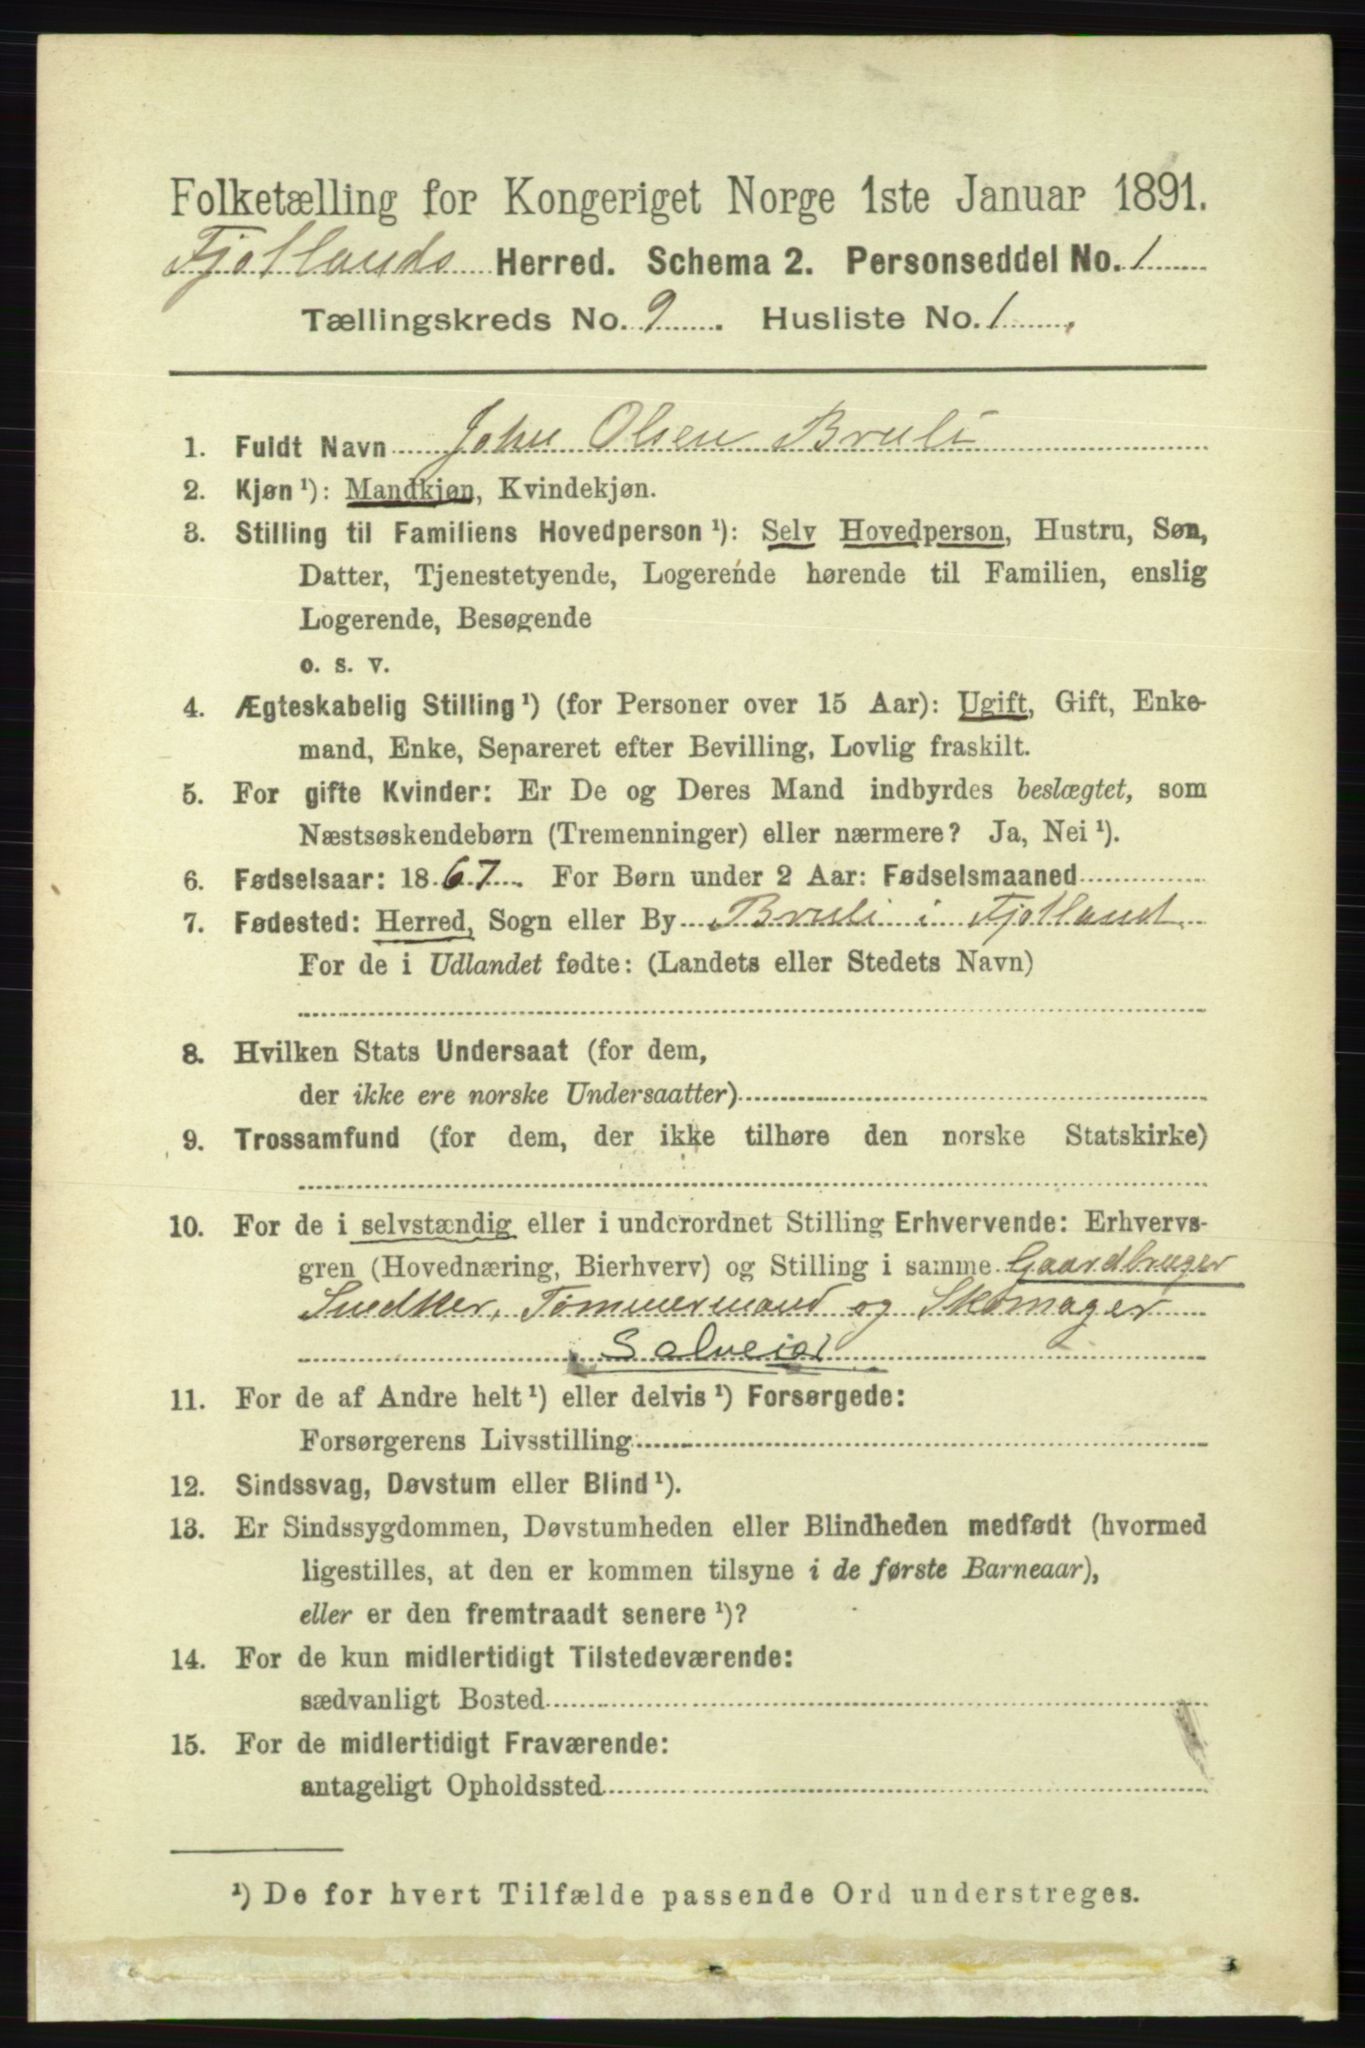 Folketælling for Kongeriget Norge 1ste Januar 1891.
Fjotlands Herred. Schema 2. Personseddel No. 1
Tællingskreds No. 9. Husliste No. 1.
1. Fuldt Navn John Olsen Bruli
2. Kjøn ¹): Mandkjøn, Kvindekjøn.
3. Stilling til Familiens Hovedperson ¹): Selv Hovedperson, Hustru, Søn,
Datter, Tjenestetyende, Logerende hørende til Familien, enslig
Logerende, Besøgende
o. s. v.
4. Ægteskabelig Stilling ¹) (for Personer over 15 Aar): Ugift, Gift, Enke-
mand, Enke, Separeret efter Bevilling, Lovlig fraskilt.
5. For gifte Kvinder: Er De og Deres Mand indbyrdes beslægtet, som
Næstsøskendebørn (Tremenninger) eller nærmere? Ja, Nei ¹).
6. Fødselsaar: 1867. For Børn under 2 Aar: Fødselsmaaned
7. Fødested: Herred, Sogn eller By Bruli i Fjotland.
For de i Udlandet fødte: (Landets eller Stedets Navn)
8. Hvilken Stats Undersaat (for dem,
der ikke ere norske Undersaatter)
9. Trossamfund (for dem, der ikke tilhøre den norske Statskirke)
10. For de i selvstændig eller i underordnet Stilling Erhvervende: Erhvervs-
gren (Hovednæring, Bierhverv) og Stilling i samme Gaardbruger
Snedker, Tømmermand og Skomager
Selveier
11. For de af Andre helt ¹) eller delvis ¹) Forsørgede:
Forsørgerens Livsstilling
12. Sindssvag, Døvstum eller Blind ¹).
13. Er Sindssygdommen, Døvstumheden eller Blindheden medfødt (hvormed
ligestilles, at den er kommen tilsyne i de første Barneaar),
eller er den fremtraadt senere ¹)?
14. For de kun midlertidigt Tilstedeværende:
sædvanligt Bosted
15. For de midlertidigt Fraværende:
antageligt Opholdssted
¹) De for hvert Tilfælde passende Ord understreges.